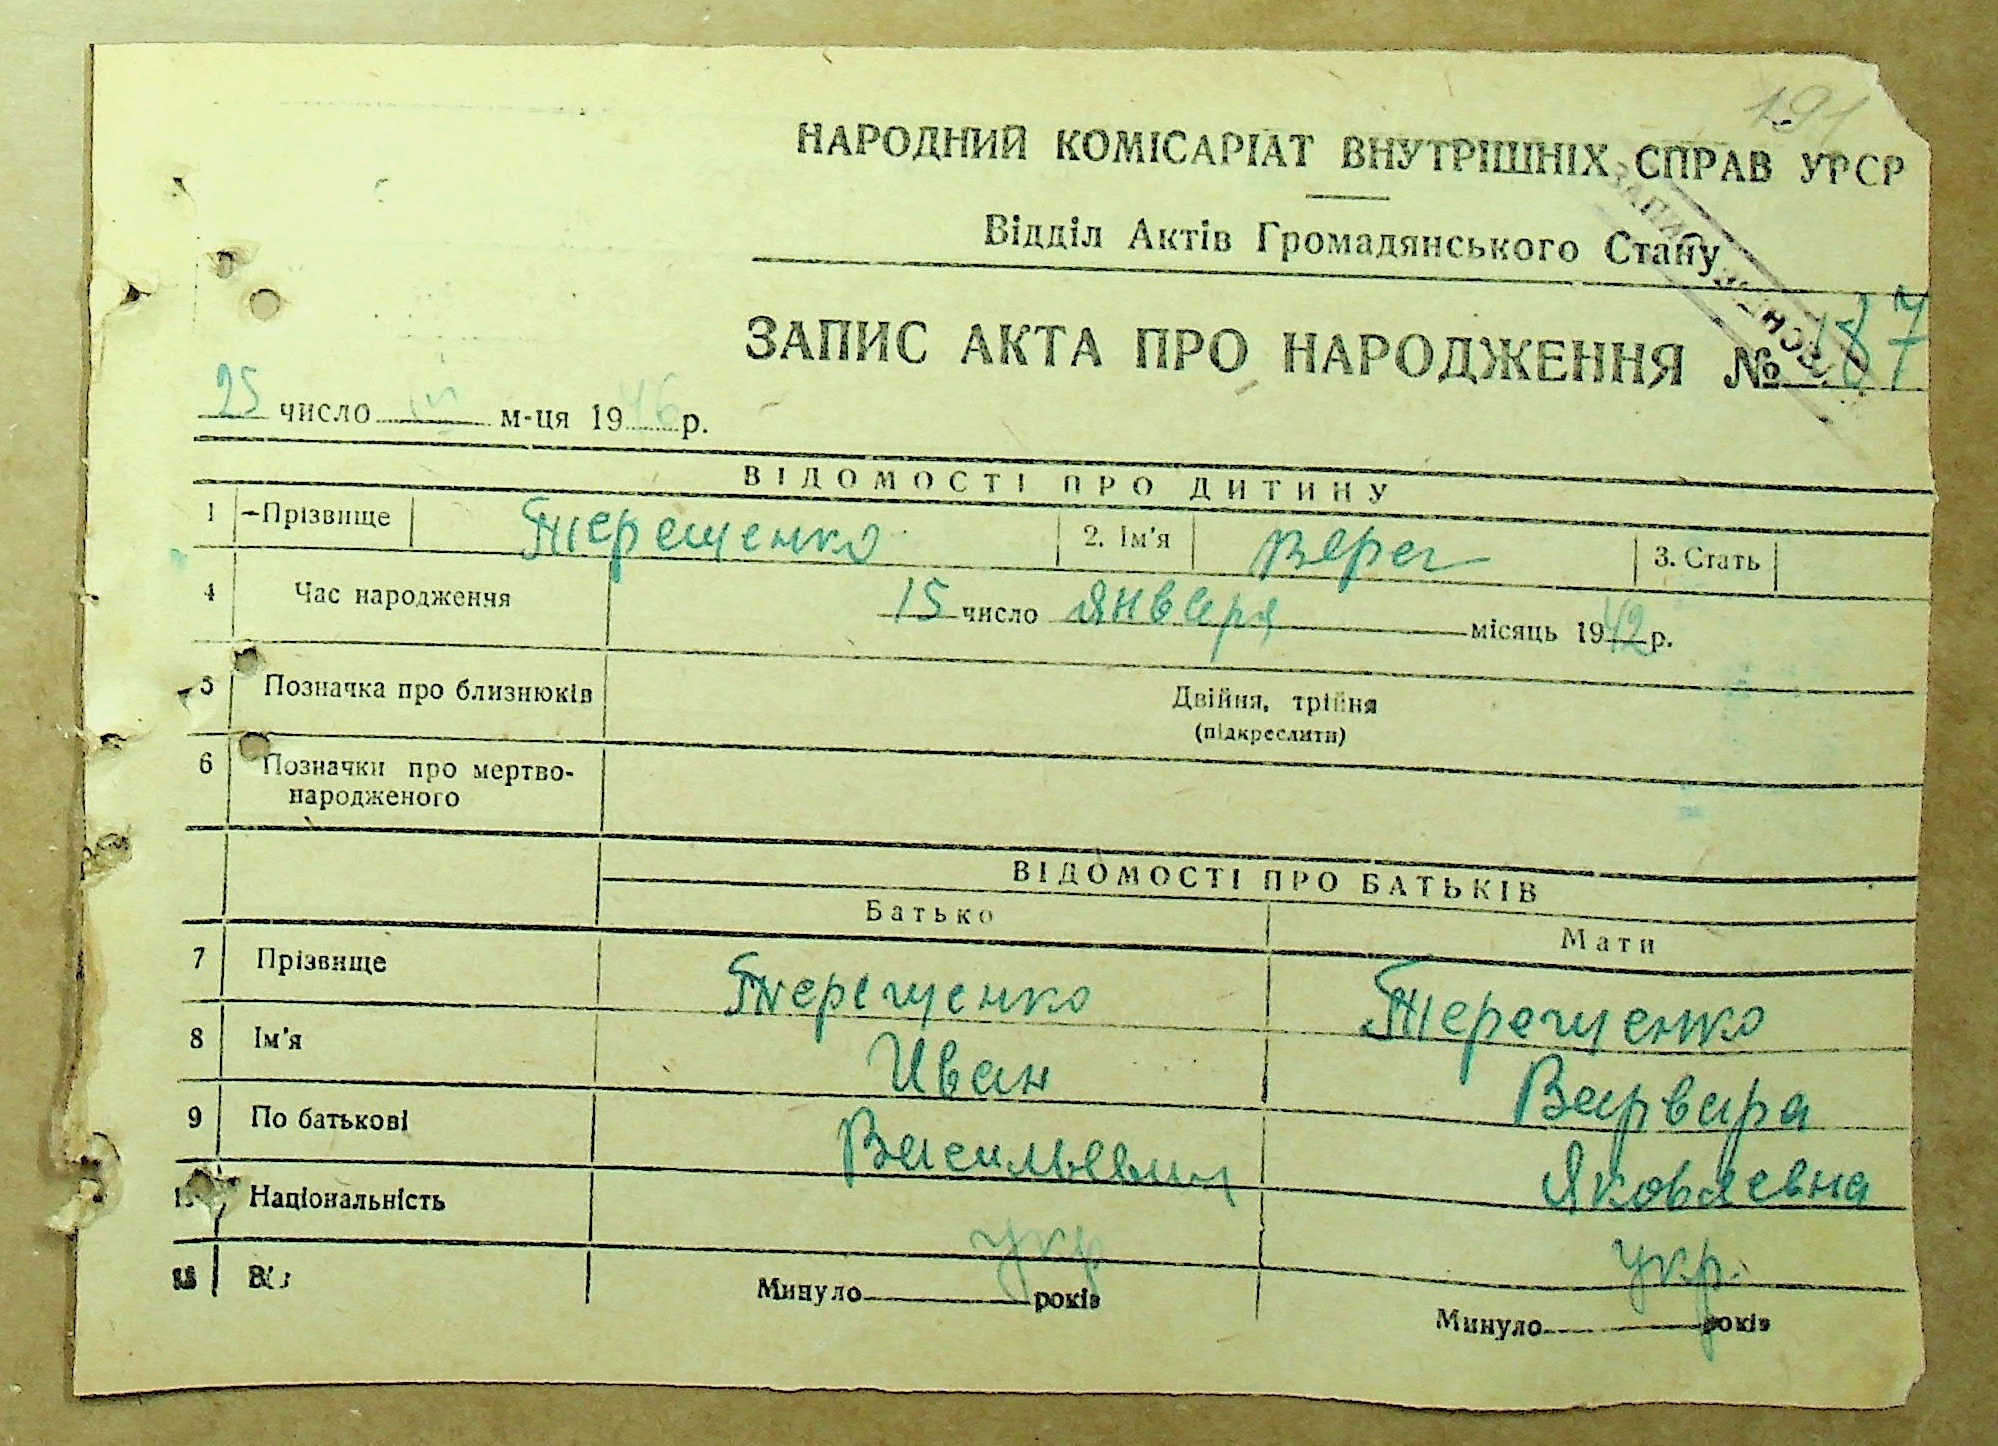 191
НАРОДНИЙ КОМІСАРІАТ ВНУТРІШНІХ СПРАВ УРСР
Відділ Актів Громадянського Стану
ЗАПИС АКТА ПРО НАРОДЖЕННЯ № 187
25 число м-ця 1946 р.
ВІДОМОСТІ ПРО ДИТИНУ
1 Прізвище Терещенко 2. Ім'я Вера 3. Стать
4 Час народження 15 число января місяць 1942 р.
5 Позначка про близнюків Двійня, трійня
(підкреслити)
6 Позначки про мертво-
народженого
ВІДОМОСТІ ПРО БАТЬКІВ
Батько Мати
7 Прізвище Терещенко Терещенко
8 Ім'я Иван Варвара
9 По батькові Васильевич Яковлевна
Національність укр укр.
Минуло років Минуло років